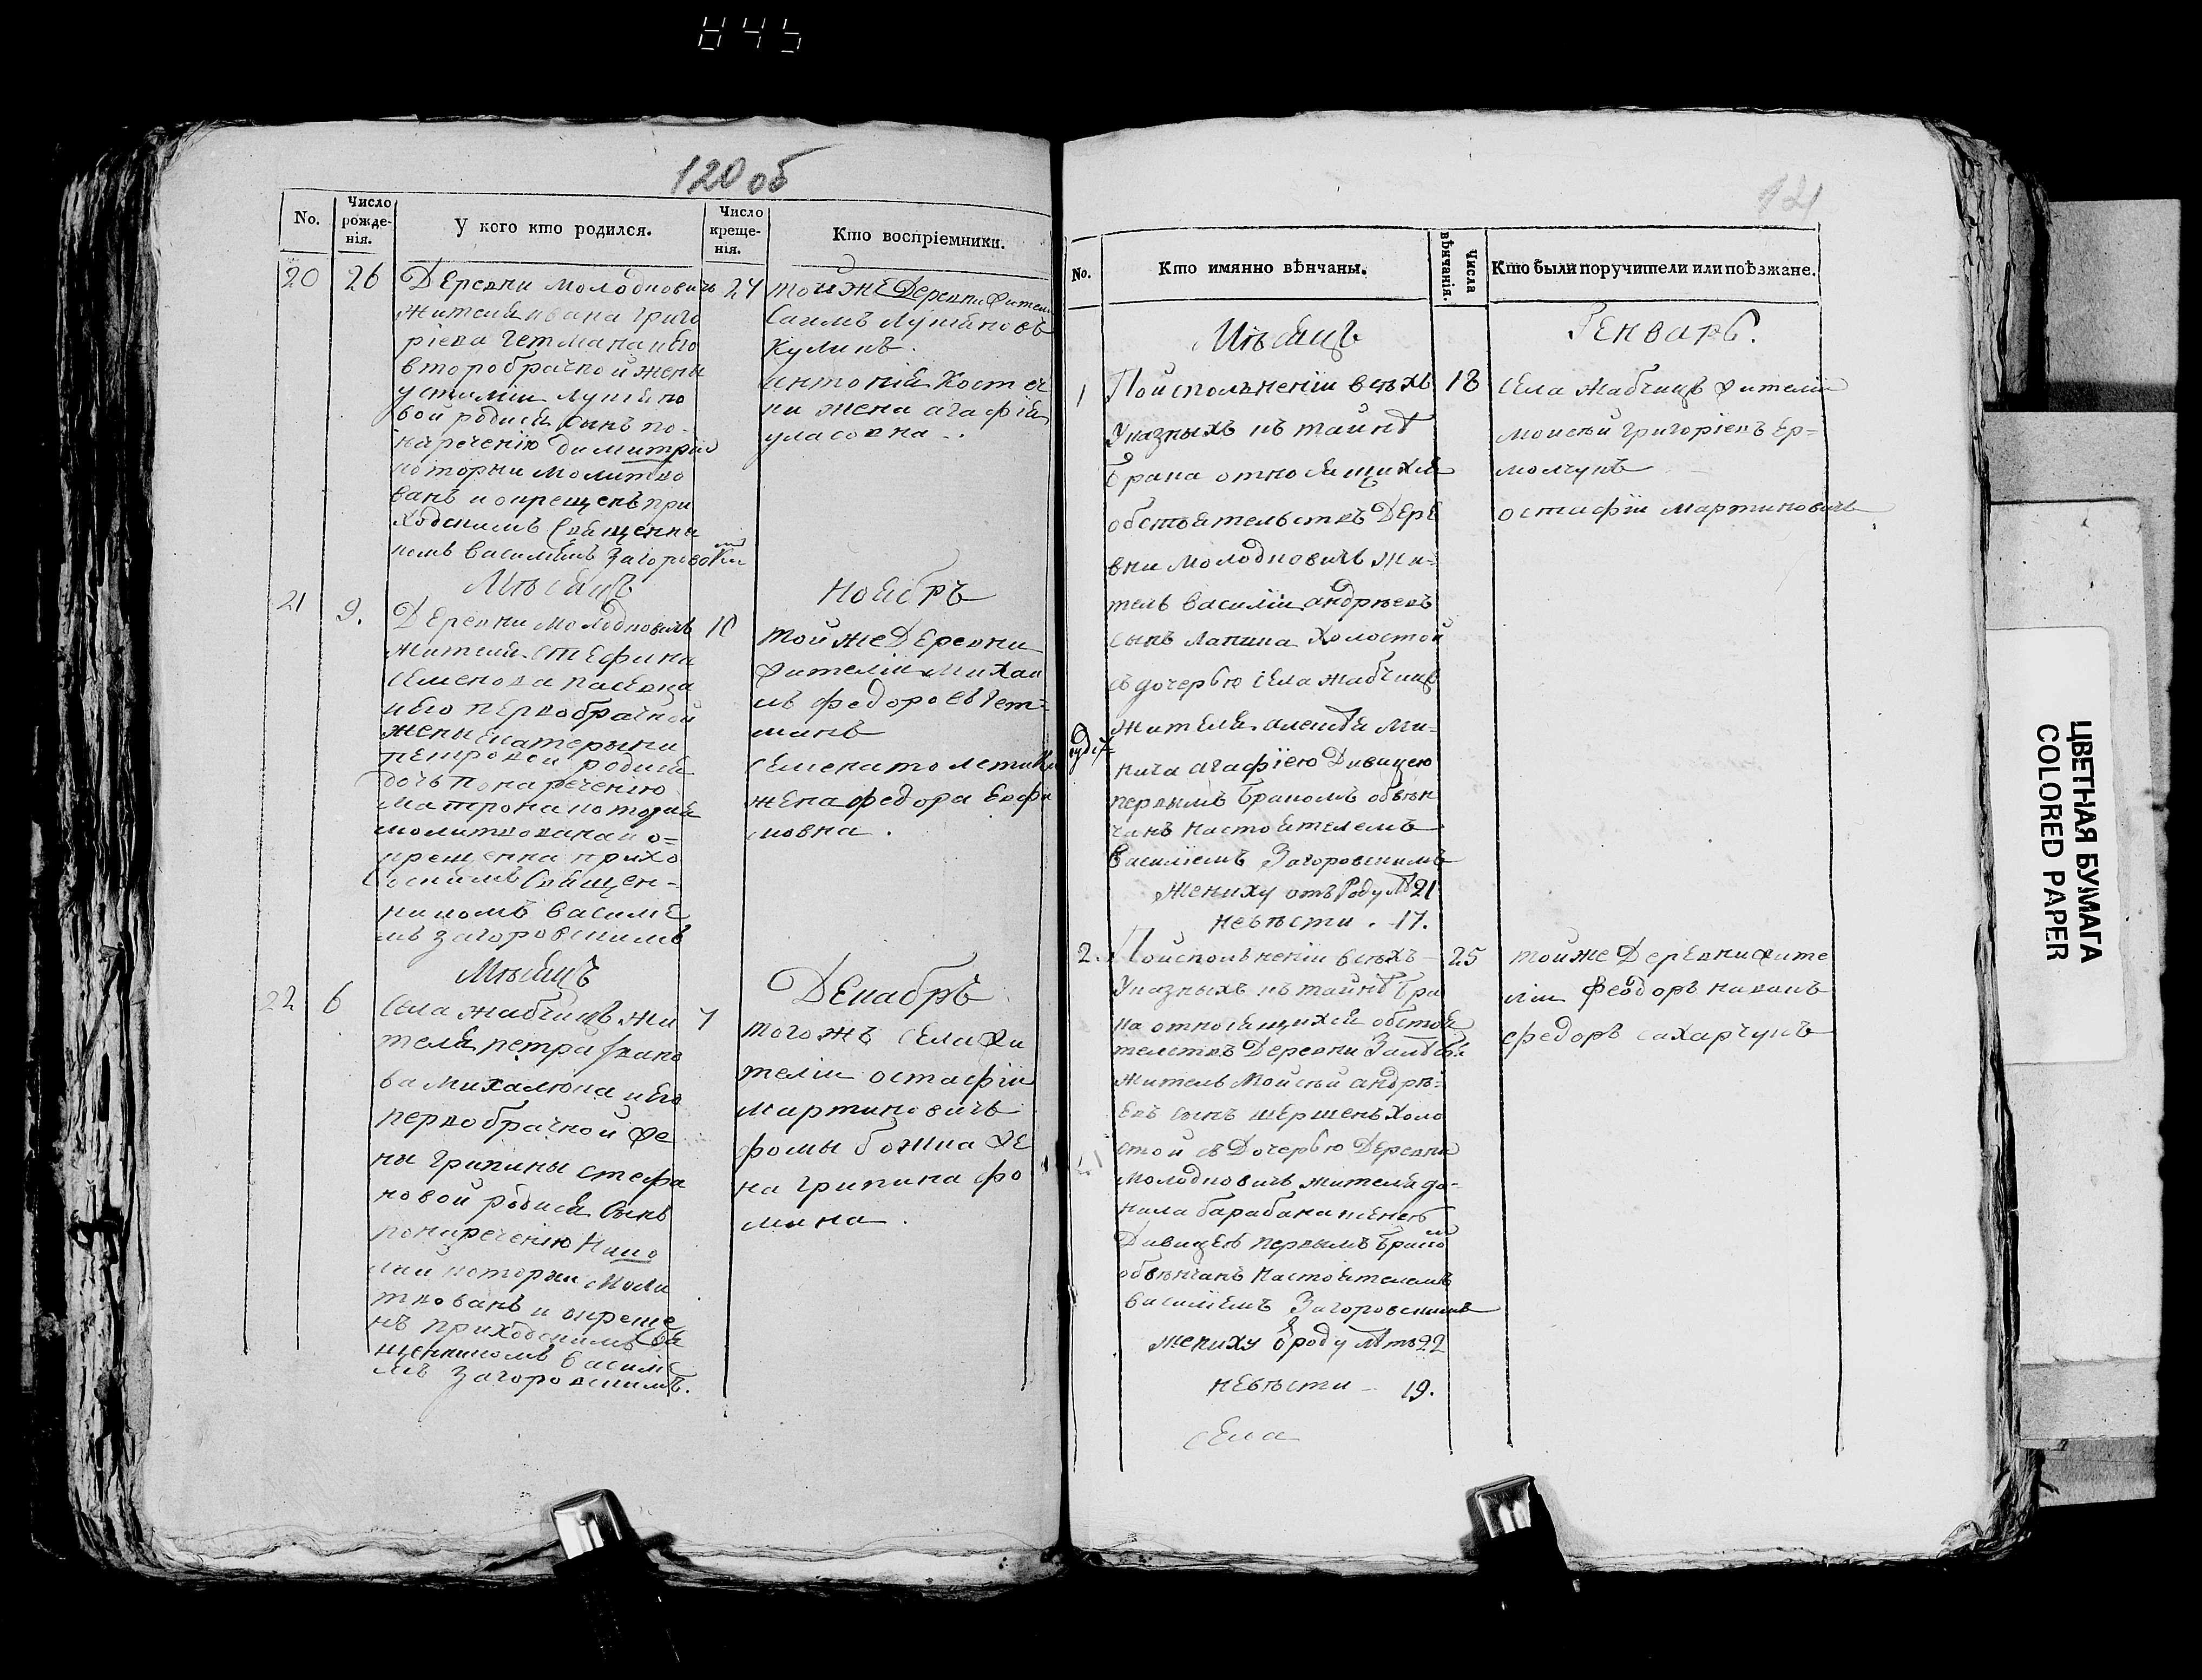 845
120 об
No.
Число рожденія.
У кого кто родился.
Число крещенія.
Кто воспріемники.
20 26 Деревни Молодновичъ 27
жителя ивана григо
ріева гетмана и Его
второбрачной жены
устиміи
вой родися сынъ по
нареченію димитріи
которыи молитво
ванъ и окрещенъ при
ходскимъ Священни
комъ Василіемъ Загоровски
той же Деревни жители
Кулинъ.
антоній
жена агафія
уласовна.
Мѣсяцъ Ноябръ
21 9. Деревни Молодновичъ 10
жителя стефана
Семенова
и Его первобрачной
жены Екатерыни
петровой родися
дочь по нареченію
матрона которая
молитвована и о=
крещенна прихо
дскимъ Священ-
никомъ Василіе
мъ Загоровскимъ
той же Деревни
жителіи Михаи
лъ федоровъ Гет=
манъ
жена федора
мовна.
Мѣсяцъ Декабръ
22 6 Села Жабчицъ жи 7
теля петра Ивано
ва Михалюка и Его
первобрачной же
ны грипины стефа
новой родися Сынъ
по нареченію Нико
лаи которыи моли
твованъ и окреще
нъ приходскимъ Свя
щенникомъ Василіе
мъ Загоровскимъ.
тогожъ Села жи
теліи остафіи
Мартиновичъ
фомы божка же
на грипина фо
мина.
121
No.
Кто имянно вѣнчаны.
Числа вѣнчанія.
Кто были поручители или поѣзжане.
Мѣсяцъ Генваръ.
1 По исполненіи всѣхъ 18
Указныхъ къ тайнѣ
брака относящихся
обстоятельствъ Дере
вни Молодновичъ жи=
тель Василіи андрѣевъ
сынъ Лапика Холостой
съ дочерью села Жабчицъ
жителя алексѣя Ми=
кича агафіею Дивицею
первымъ бракомъ обвѣн
чанъ настоятелемъ
Василіемъ Загоровскимъ
жениху отъ Роду лѣ 21
невѣсти. 17.
Села Жабчицъ жителіи
Моисѣй григоріевъ Ер=
молчукъ
остафіи Мартиновичъ
2. По исполненіи всѣхъ 25
Указныхъ къ тайнѣ бра
ка относящихся обстоя
телствъ Деревни
житель Мойсѣй андрѣ=
евъ сынъ шершень холо
стой съ Дочерью Деревни
Молодновичъ жителя да-
нила барабана
Дивицею первымъ брако
обвѣнчанъ настоятелемъ
василіемъ Загоровскимъ
жениху роду лѣтъ 22
невѣсти - 19.
той же Деревни жите
ліи Феодоръ
федоръ сахарчукъ
Села
ЦВЕТНАЯ БУМАГА
COLORED PAPER